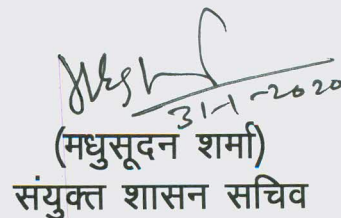 31-1-2020
(मधुसूदन शर्मा)
संयुक्त शासन सचिव